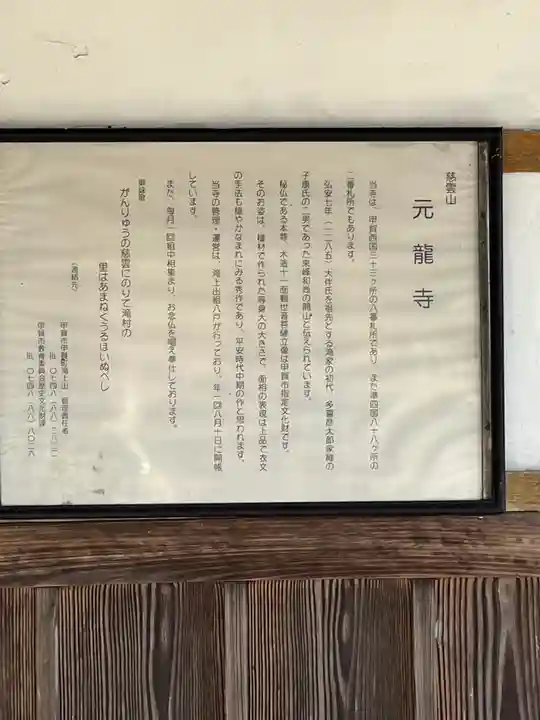 慈雲山
元龍寺
当寺は、甲賀西国三十三ヶ所の八番札所であり、また準四国八十八ヶ所の
二番札所でもあります。
弘安七年(一二八五)大伴氏を祖先とする滝家の初代、多喜彦太郎家継の
子康氏の二男であった来峰和尚の開山と伝えられています。
秘仏である本尊、木造十一面観世音菩薩立像は甲賀市指定文化財です。
そのお姿は、檀材で作られた等身大の大きさで、面相の表現は上品で衣文
の手法も穏やかなまれにみる秀作であり、平安時代中期の作と思われます。
当寺の管理・運営は、滝上出組八戸が行っており、年一回八月十日に開帳
しています。
また、毎月一回組中相集まり、お念仏を唱え奉仕しております。
御詠歌
がんりゅうの慈雲にのりて滝村の
里はあまねくうるほいぬべし
(連絡先)
甲賀市甲賀町滝上出 管理責任者
甲賀市教育委員会歴史文化財課
℡ 〇七四八(八六)八〇二六